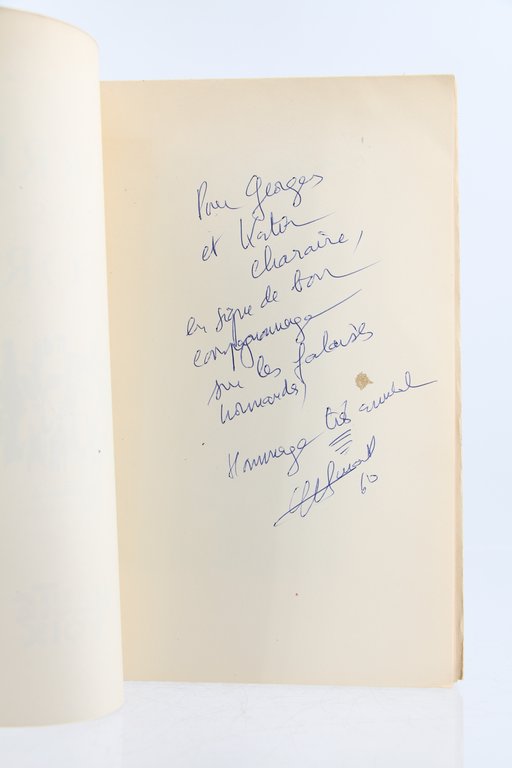 Pour Georges
et Katia
Charaire,
en signe de bon
compagnonnage
sur les falaises
normandes
Hommage très amical
60